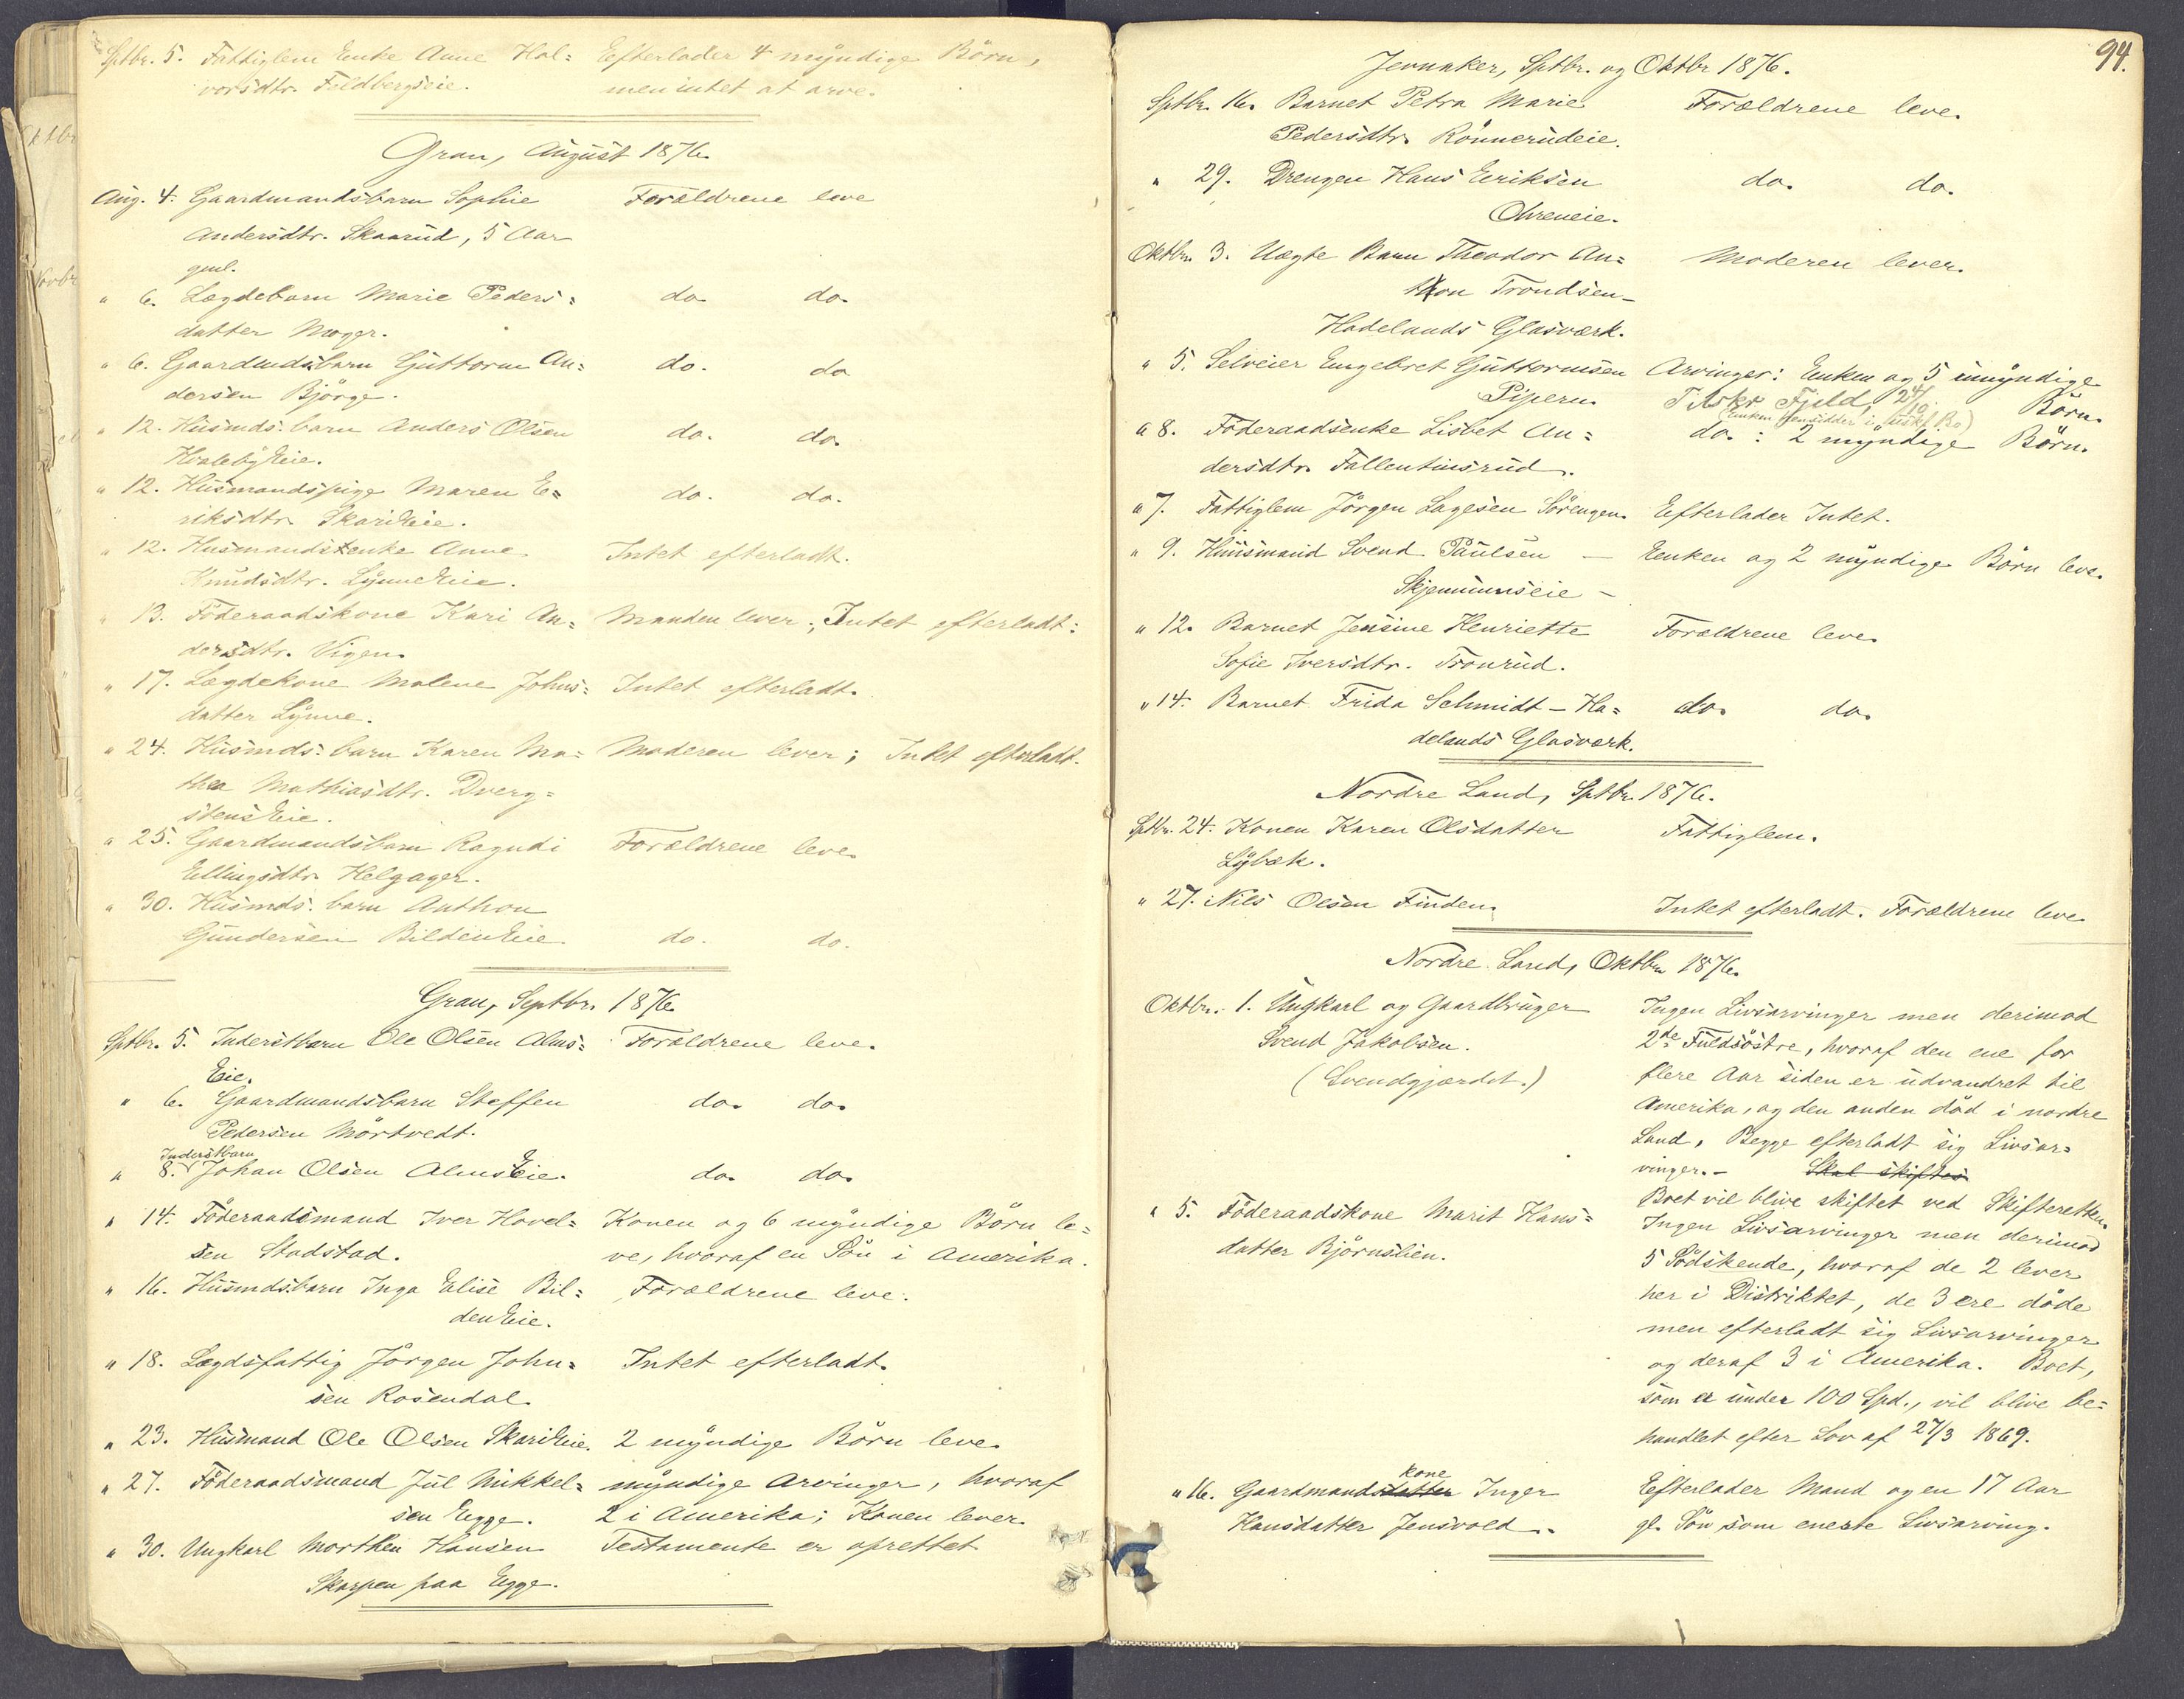 Sptbr. 5. Fattiglem Enke Anne Hal= Efterlader 4 myndige Börn,
vorsdtr. Feldbergseie. men intet at arve.
Gran, August 1876.
Aug. 4. Gaardmandsbarn Sophie Forældrene leve
Andersdtr. Skaarud, 5 Aar
gml.
" 6. Lægdebarn Marie Peders= do do.
datter Moger.
" 6. Gaardmdsbarn Guttorm An= do. do
dersen Björge.
" 12. Husmds. barn Anders Olsen do. do.
Hvalebyeie.
" 12. Husmandspige Maren E= do. do.
riksdtr. Skarieie.
" 12. Husmandsenke Anne Intet efterladt.
Knudsdtr. Lynneeie.
" 13. Föderaadskone Kari An= Manden lever; Intet efterladt:
dersdtr. Vigen.
" 17. Lægdekone Malene Johns= Intet efterladt.
datter Lynne.
" 24. Husmds: barn Karen Ma= Moderen lever; Intet efterladt.
thea Mathiasdtr. Dverg=
stenseie.
" 25. Gaardmandsbarn Ragndi Forældrene leve.
Ellingsdtr. Helgager.
" 30. Husmds. barn Anthon
Gundersen Bildeneie. do. do.
Gran, Septbr. 1876.
Sptbr. 5. Inderstbarn Ole Olsen Alms= Forældrene leve.
Eie.
" 6. Gaardmandsbarn Steffen do. do.
Pedersen Mörtvedt.
Inderstbarn
" 8. Johan Olsen AlmsEie. do. do.
" 14. Föderaadsmand Iver Hovel= Konen og 6 myndige Börn le=
sen Stadstad. ve, hvoraf en Sön i Amerika.
" 16. Husmdsbarn Inga Elise Bil= Forældrene leve.
deneie.
" 18. Lægdsfattig Jörgen John= Intet efterladt.
sen Rosendal.
" 23. Husmand Ole Olsen Skarieie. 2 myndige Börn leve.
" 27. Föderaadsmand Jul Mikkel= myndige Arvinger, hvoraf
sen Egge. 2 i Amerika; Konen lever.
" 30. Ungkarl Morthen Hansen Testamente er oprettet
Skarpen paa Egge.
94.
Jevnaker, Sptbr. og Oktbr 1876.
Sptbr. 16. Barnet Petra Marie Forældrene leve.
Pedersdtr. Rönnerudeie.
" 29. Drengen Hans Eeriksen do. do.
Ohreneie.
Oktbr. 3. Uægte Barn Theodor An= Moderen lever.
thon Trondsen –
Hadelands Glasværk.
" 5. Selveier Engebret Guttormsen Arvinger: Enken og 5 umyndige
Pipern. Tilskr Fjeld, 24/10. Börn.
(Enken hensidder i uskft Bo)
" 8. Föderaadsenke Lisbet An= do. : 2 myndige Börn.
dersdtr. Fallentinsrud.
" 7. Fattiglem Jörgen Lagesen Sörengen. Efterlader Intet.
" 9. Huusmand Svend Paulsen – Enken og 2 myndige Börn leve.
Skjennumseie –
" 12. Barnet Jensine Henriette Forældrene leve.
Sofie Iversdtr. Tronrud.
" 14. Barnet Frida Schmidt – Ha= do. do.
delands Glasværk.
Nordre Land, Sptbr. 1876.
Sptbr. 24. Konen Karen Olsdatter Fattiglem.
Lybæk.
" 27. Nils Olsen Finden. Intet efterladt. Forældrene leve
Nordre Land, Oktbr. 1876.
Oktbr. 1. Ungkarl og Gaardbruger Ingen Livsarvinger men derimod
Svend Jakobsen. 2de Fuldsöstre, hvoraf den ene for
(Svendgjærdet.) flere Aar siden er udvandret til
Amerika, og den anden död i nordre
Land, Begge efterladt sig Livsar=
vinger. – Skal skiftes
Boet vil blive skiftet ved Skifteretten.
" 5. Föderaadskone Marit Hans= Ingen Livsarvinger men derimod
datter Björnslien. 5 Södskende, hvoraf de 2 lever
her i Distriktet, de 3 ere döde
men efterladt sig Livsarvinger
og deraf 3 i Amerika. Boet,
som er under 100 Spd., vil blive be=
handlet efter Lov af 27/3 1869.
kone
" 16. Gaardmandsdatter Inger Efterlader Mand og en 17 Aar
Hansdatter Jensvold. gl. Sön som eneste Livsarving.